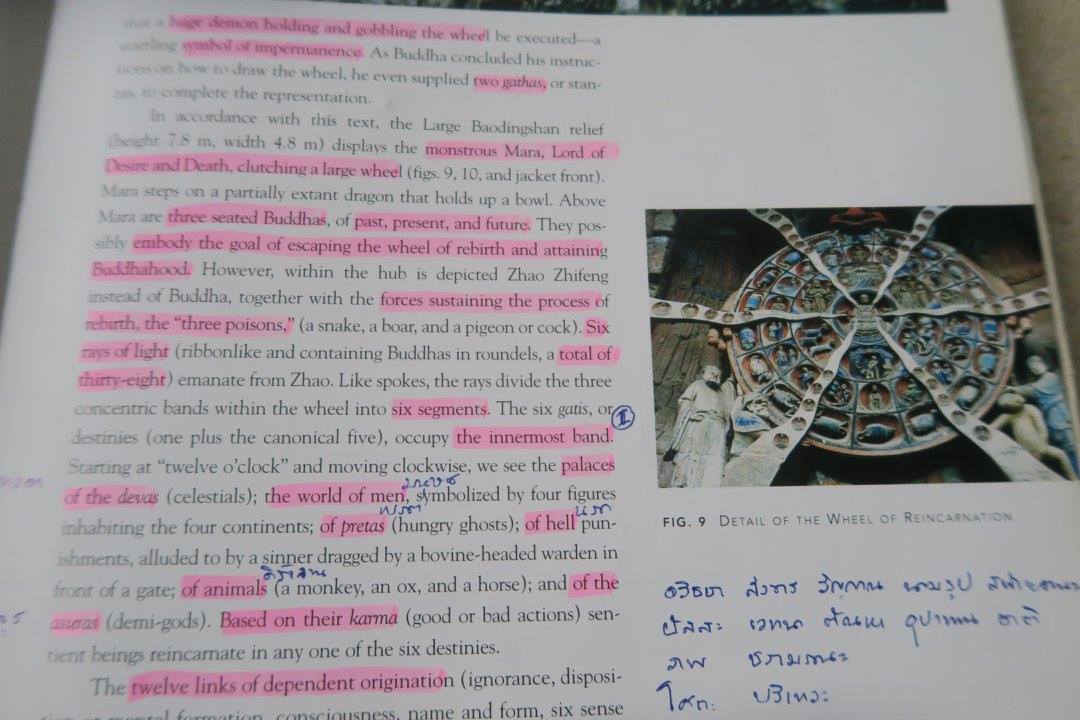 that a huge demon holding and gobbling the wheel be executed—a
startling symbol of impermanence. As Buddha concluded his instruc-
tions on how to draw the wheel, he even supplied two gathas, or stan-
zas, to complete the representation.
In accordance with this text, the Large Baodingshan relief
(height 7.8 m, width 4.8 m) displays the monstrous Mara, Lord of
Desire and Death, clutching a large wheel (figs. 9, 10, and jacket front).
Mara steps on a partially extant dragon that holds up a bowl. Above
Mara are three seated Buddhas, of past, present, and future. They pos-
sibly embody the goal of escaping the wheel of rebirth and attaining
Buddhahood. However, within the hub is depicted Zhao Zhifeng
instead of Buddha, together with the forces sustaining the process of
rebirth, the “three poisons,” (a snake, a boar, and a pigeon or cock). Six
rays of light (ribbonlike and containing Buddhas in roundels, a total of
thirty-eight) emanate from Zhao. Like spokes, the rays divide the three
concentric bands within the wheel into six segments. The six gatis, or
destinies (one plus the canonical five), occupy the innermost band.
Starting at “twelve o’clock” and moving clockwise, we see the palaces
of the devas (celestials); the world of men, symbolized by four figures
มนุษย์
inhabiting the four continents; of pretas (hungry ghosts); of hell pun-
เปรต นรก
ishments, alluded to by a sinner dragged by a bovine-headed warden in
front of a gate; of animals (a monkey, an ox, and a horse); and of the
asuras (demi-gods). Based on their karma (good or bad actions) sen-
tient beings reincarnate in any one of the six destinies.
The twelve links of dependent origination (ignorance, disposi-
consciousness, name and form, six sense
FIG. 9 DETAIL OF THE WHEEL OF REINCARNATION
อวิชชา สังขาร วิญญาณ นามรูป สฬายตนะ
ผัสสะ เวทนา ตัณหา อุปาทาน ชาติ
ภพ ชรามรณะ
โสกะ ปริเทวะ